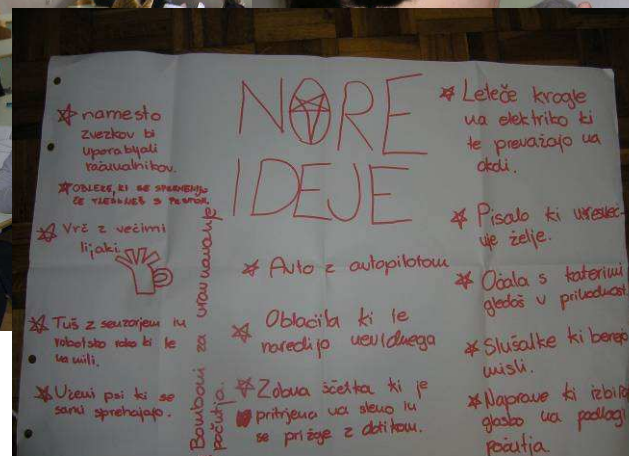 NORE
IDEJE
namesto
zvezkov bi
uporabljali
računalnikov.
OBLEKE, KI SE SPREMENIJO
ČE TLESKNEŠ S PRSTOM.
Vrč z večimi
lijaki.
Tuš z senzorjem in
robotsko roko ki te
na mili.
Učeni psi ki se
sami sprehajajo.
Bomboni za uravnavanje
počutja.
Avto z autopilotom
Oblačila ki te
naredijo nevidnega
Zobna ščetka ki je
pritrjena na steno in
se prižge z dotikom.
Leteče krogle
na elektriko ki
te prevažajo na
okoli.
Pisalo ki uresnič-
uje želje.
Očala s katerimi
gledaš v prihodnost.
Slušalke ki berejo
misli.
Naprave ki izbira
glasbo na podlagi
počutja.